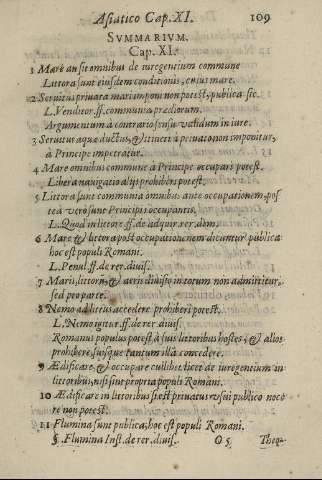 Asiatico Cap. XI. 109
SVMMARIVM.
Cap. XI.
1 Mare an sit omnibus de iure gentium commune
Littora sunt eiusdem conditionis, cuius mare.
2 Seruitus priuata mari imponi non potest, publica sic.
L. Venditor. ff. communia prædiorum.
Argumentum à contrario sensu validum in iure.
3 Seruitus aquæ ductus, & itineri à priuato non imponitur,
à Principe impetratur.
4 Mare omnibus commune à Principe occupari potest.
Libera nauigatio alijs prohiberi potest.
5 Littora sunt communia omnibus ante occupationem, pos
teà verò sunt Principis occupantis.
L. Quod in littore. ff. de adquir. rer. dom.
6 Mare & littora post occupationem dicuntur publica
hoc est populi Romani.
L. Penul. ff. de rer. diuis.
7 Maris, littorũ, & aeris diuisio in totum non admittitur,
sed pro parte.
8 Nemo ad littus accedere prohiberi potest.
L. Nemo igitur. ff. de rer. diuis.
Romanus populus potest à suis littoribus hostes, & alios
prohibere, suisque tantum illa concedere.
9 Ædificare, & occupare cuilibet licet de iure gentium in
littoribus, nisi sint propria populi Romani.
10 Ædificare in littoribus si est priuatus vsui publico noce
re non potest.
11 Flumina sunt publica, hoc est populi Romani.
§. Flumina Inst. de rer. diuis. O 5 Theo-